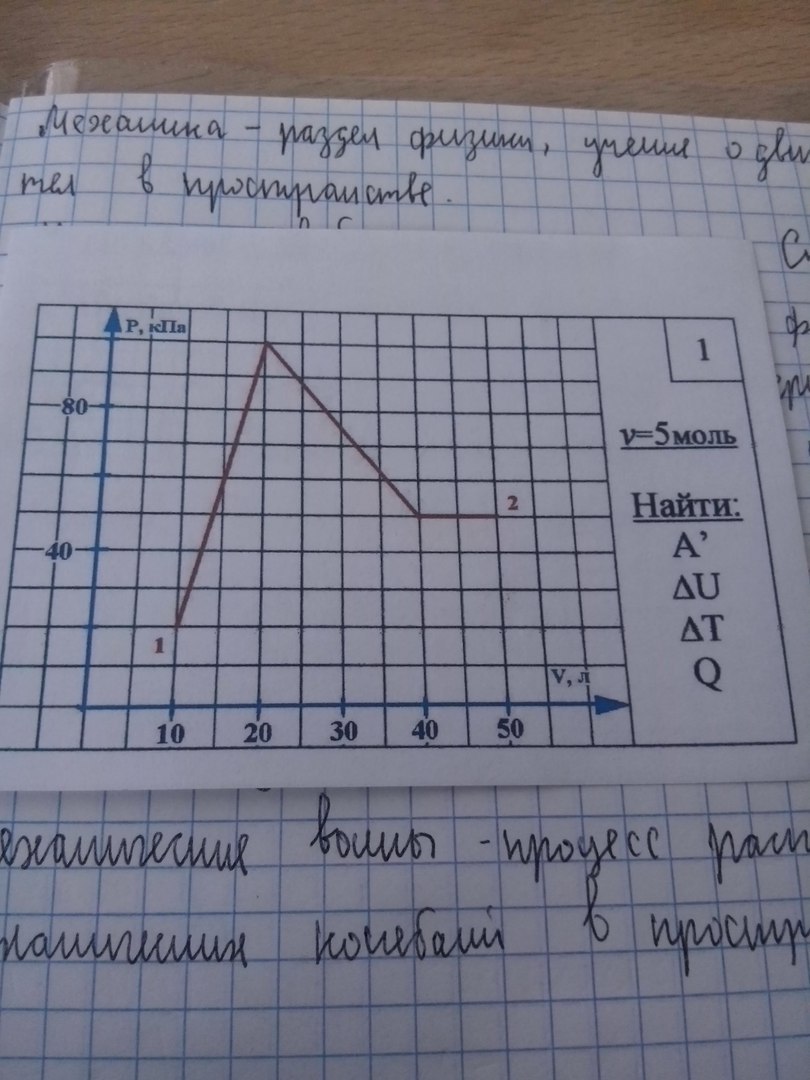 Механика - раздел физики, учение о дви
тел в пространстве.
P, кПа
1
80
ν=5моль
2
Найти:
40
A'
ΔU
ΔT
1
V, л
Q
10 20 30 40 50
еханические волны - процесс расп
ханических колебаний в простр